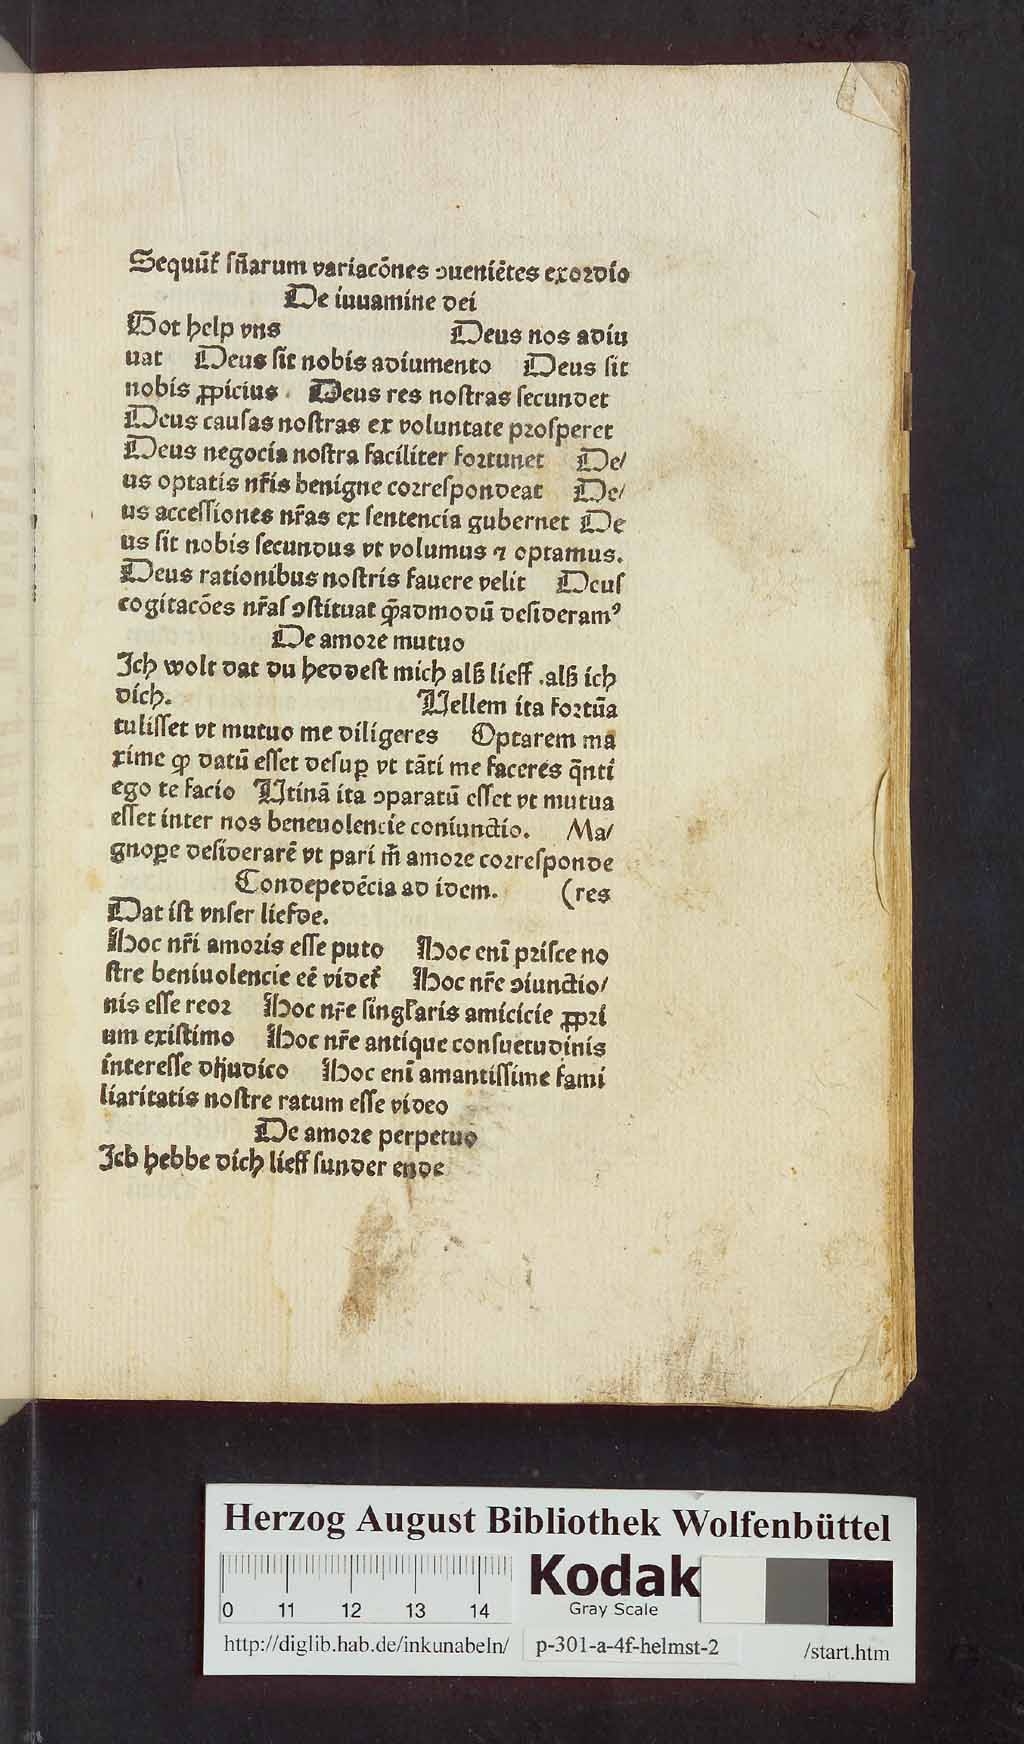 Sequūt᷑ sn̄arum variacōnes ꝯueniētes exordio
De iuuamine dei
Got help vns Deus nos adiu
uat Deus sit nobis adiumento Deus sit
nobis ꝓpicius Deus res nostras secundet
Deus causas nostras ex voluntate prosperet
Deus negocia nostra faciliter fortunet De/
us optatis nr̄is benigne correspondeat De/
us accessiones nr̄as ex sentencia gubernet De
us sit nobis secundus vt volumus ⁊ optamus.
Deus rationibus nostris fauere velit Deus
cogitacōes nr̄as ꝯstituat q̄admodū desideramꝰ
De amore mutuo
Ich wolt dat du heddest mich alß lieff .alß ich
dich. Vellem ita fortūa
tulisset vt mutuo me diligeres Optarem ma
xime ꝙ datū esset desuꝑ vt tāti me faceres q̄nti
ego te facio Vtinā ita ꝯparatū esset vt mutua
esset inter nos beneuolencie coniunctio. Ma/
gnoꝑe desiderarē vt pari m̄ amore corresponde
Condepedēcia ad idem. (res
Dat ist vnser liefde.
Hoc nr̄i amoris esse puto Hoc enī prisce no
stre beniuolencie eē videt᷑ Hoc nr̄e ꝯiunctio/
nis esse reor Hoc nr̄e singl̄aris amicicie ꝓpri
um existimo Hoc nr̄e antique consuetudinis
interesse dijudico Hoc enī amantissime fami
liaritatis nostre ratum esse video
De amore perpetuo
Ich hebbe dich lieff sunder ende
Herzog August Bibliothek Wolfenbüttel
0 11 12 13 14
Kodak
Gray Scale
http://diglib.hab.de/inkunabeln/ p-301-a-4f-helmst-2 /start.htm